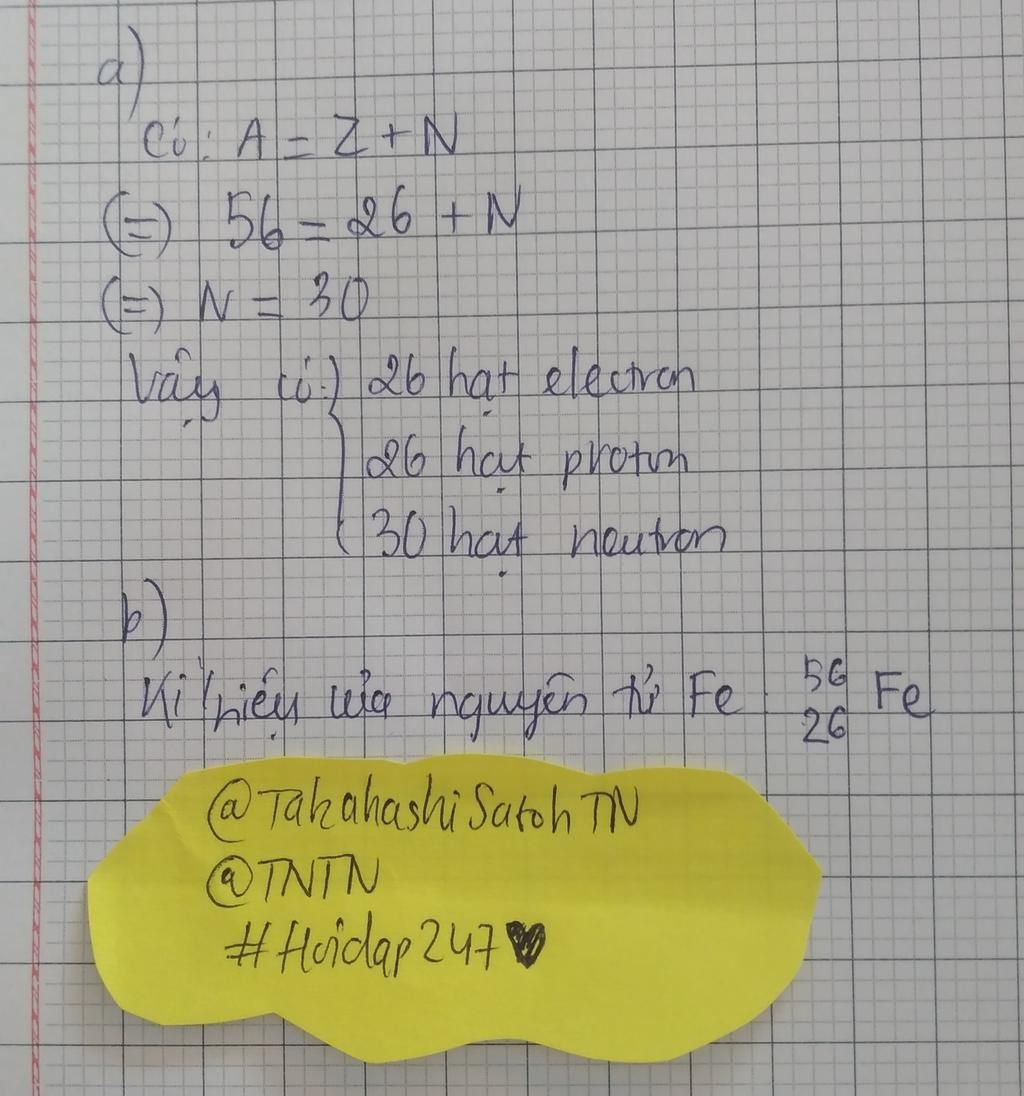 a)
Có: A = Z + N
(=) 56 = 26 + N
(=) N = 30
Vậy có: { 26 hạt electron
26 hạt proton
30 hạt neutron
b)
Kí hiệu của nguyên tử Fe : ⁵⁶₂₆ Fe
@TakahashiSatohTN
@TNTN
#Hoidap247♥